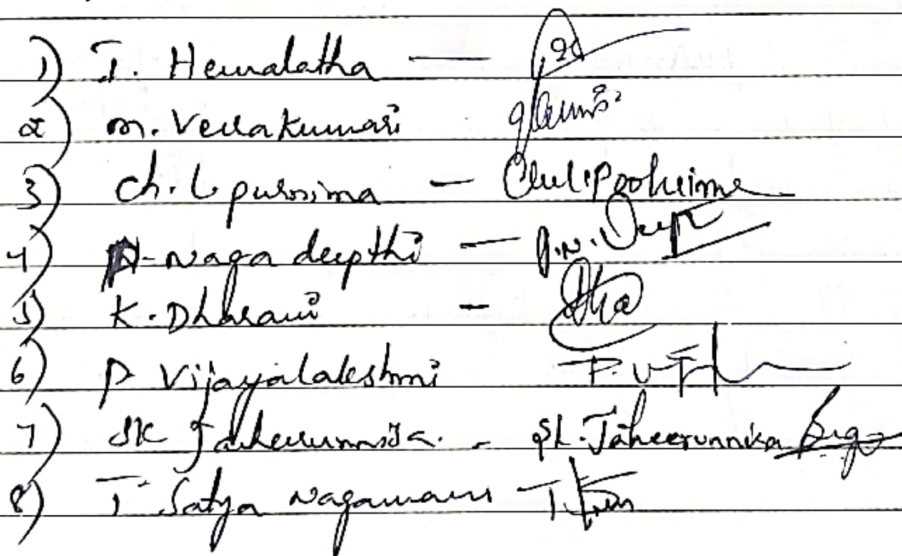 1) T. Hemalatha —
2) m. Veerakumari
3) ch. L. purnima —
4) P. naga deepthi — P.N. Deepti
5) K. Dharani -
6) P Vijayalakshmi P.V
7) SK Jaheerunnisa. - SK. Jaheerunnisa Beg
8) T. Satya nagamani